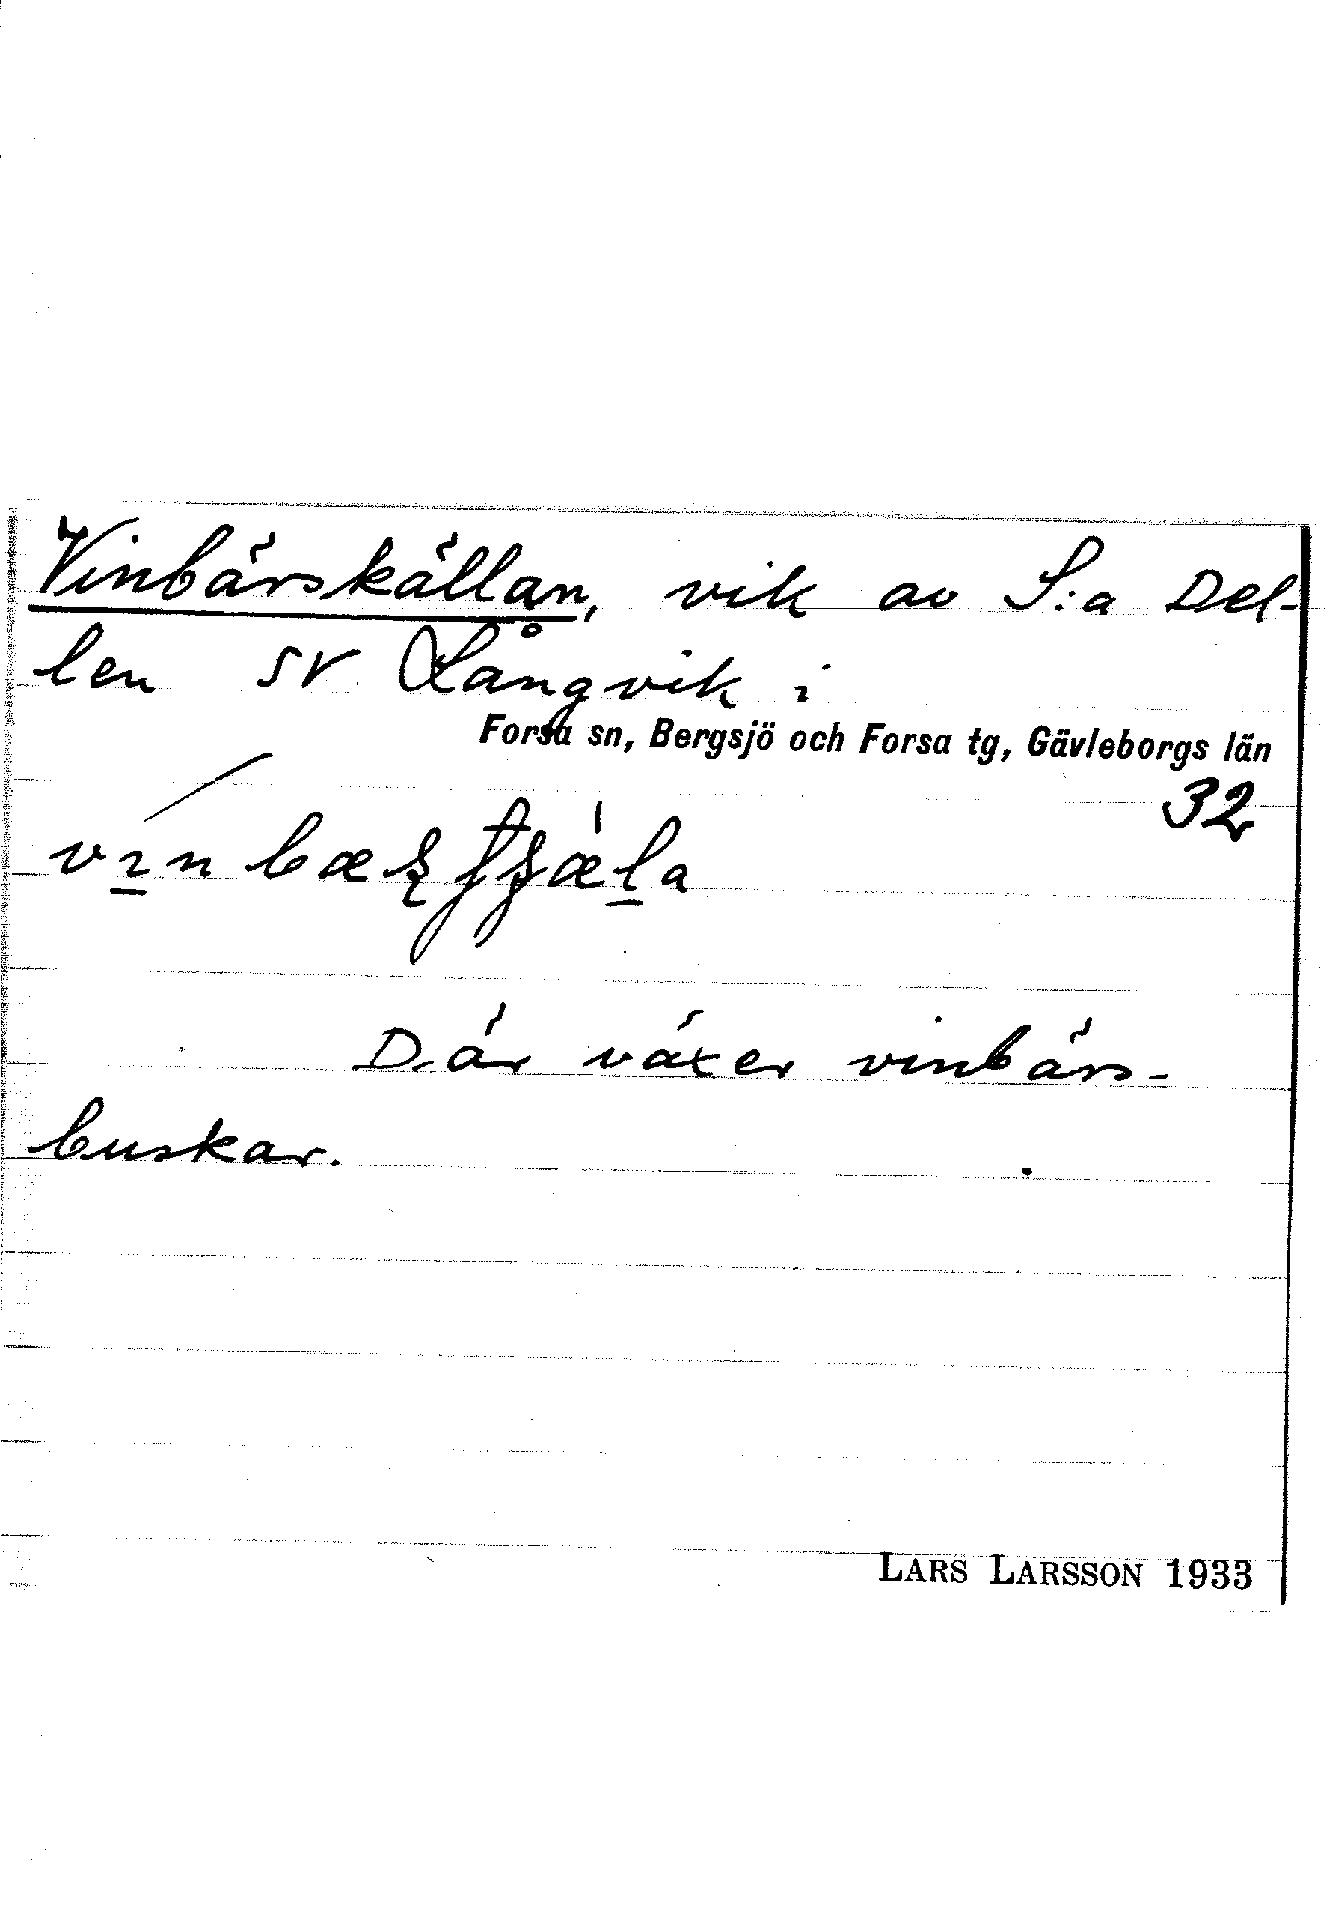 Vinbärskällan, vik av S:a Del-
len SV Långvik i
Forsa sn, Bergsjö och Forsa tg, Gävleborgs län
32
Där växer vinbärs-
buskar.
LARS LARSSON 1933